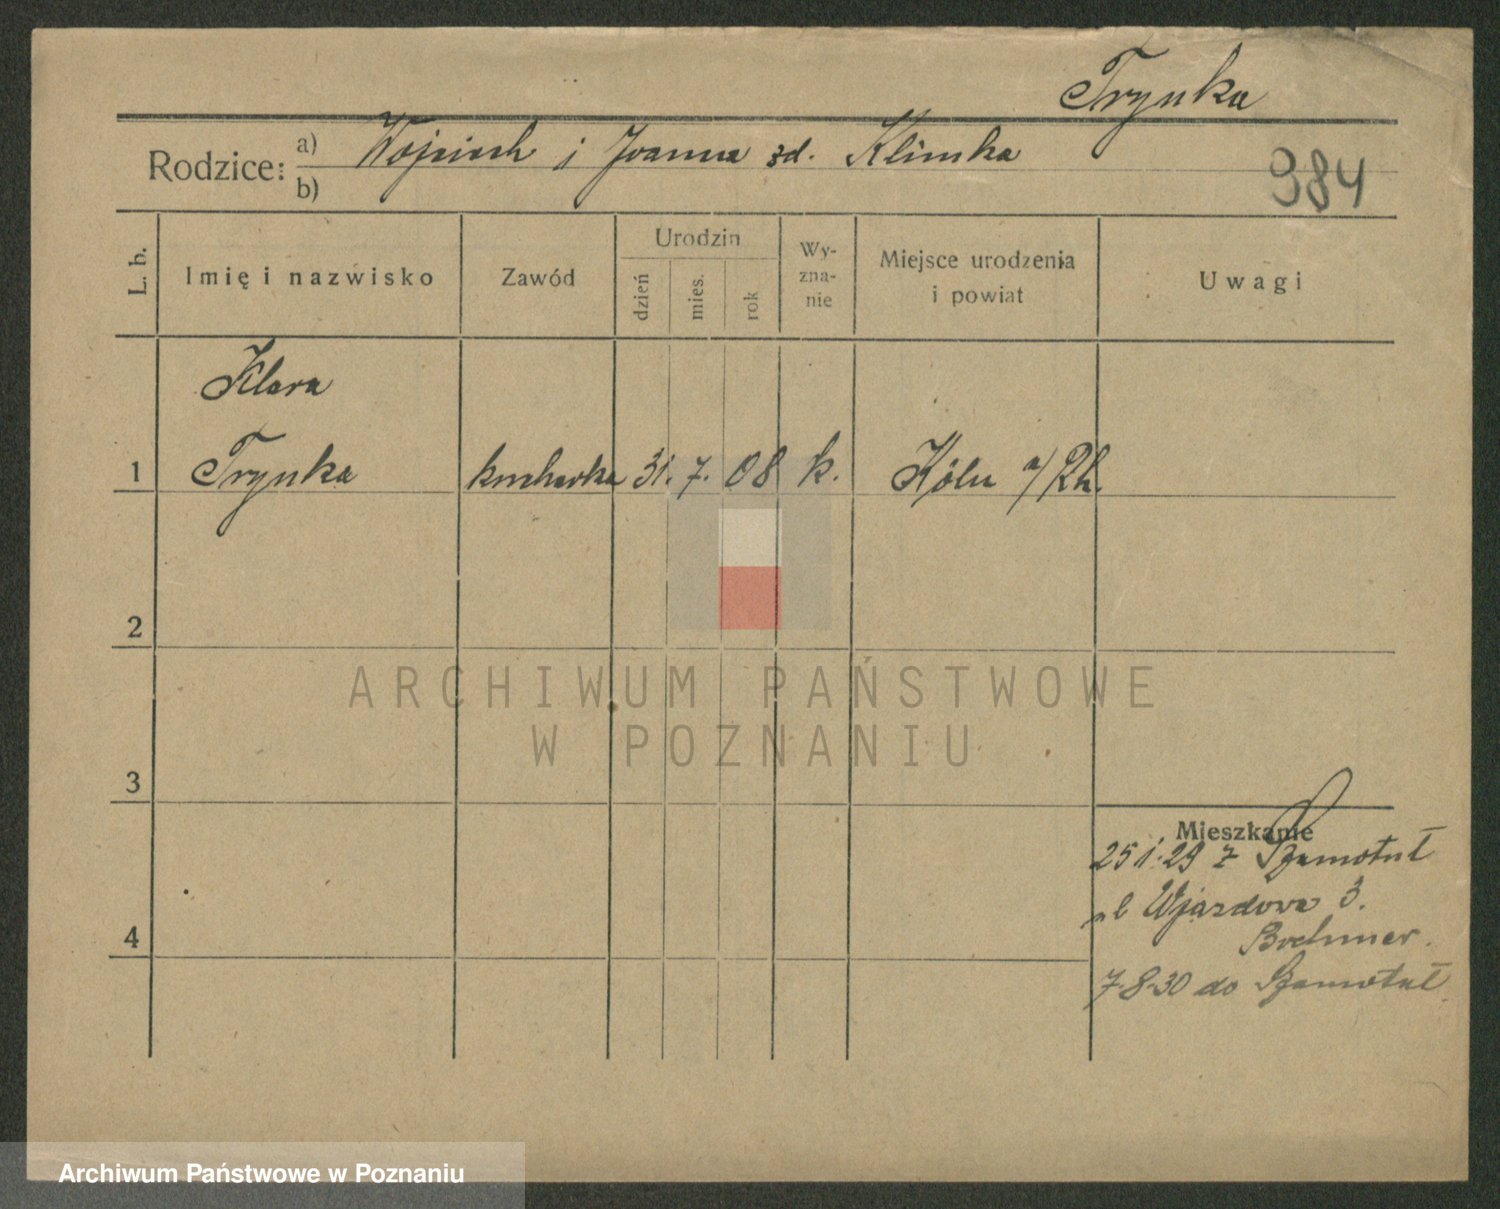 Trynka
Rodzice: a) Wojciech i Joanna zd. Klimka
b)
984
L. b.
Imię i nazwisko
Zawód
Urodzin
dzień
mies.
rok
Wy-
zna-
nie
Miejsce urodzenia
i powiat
Uwagi
Klara
1 Trynka kucharka 31. 7. 08 k. Köln a/Rh.
2
3
4
ARCHIWUM PAŃSTWOWE
W POZNANIU
Mieszkanie
25 1. 29 z Szamotuł
ul Wjazdowa 3.
Boehmer.
7-8-30 do Szamotuł
Archiwum Państwowe w Poznaniu